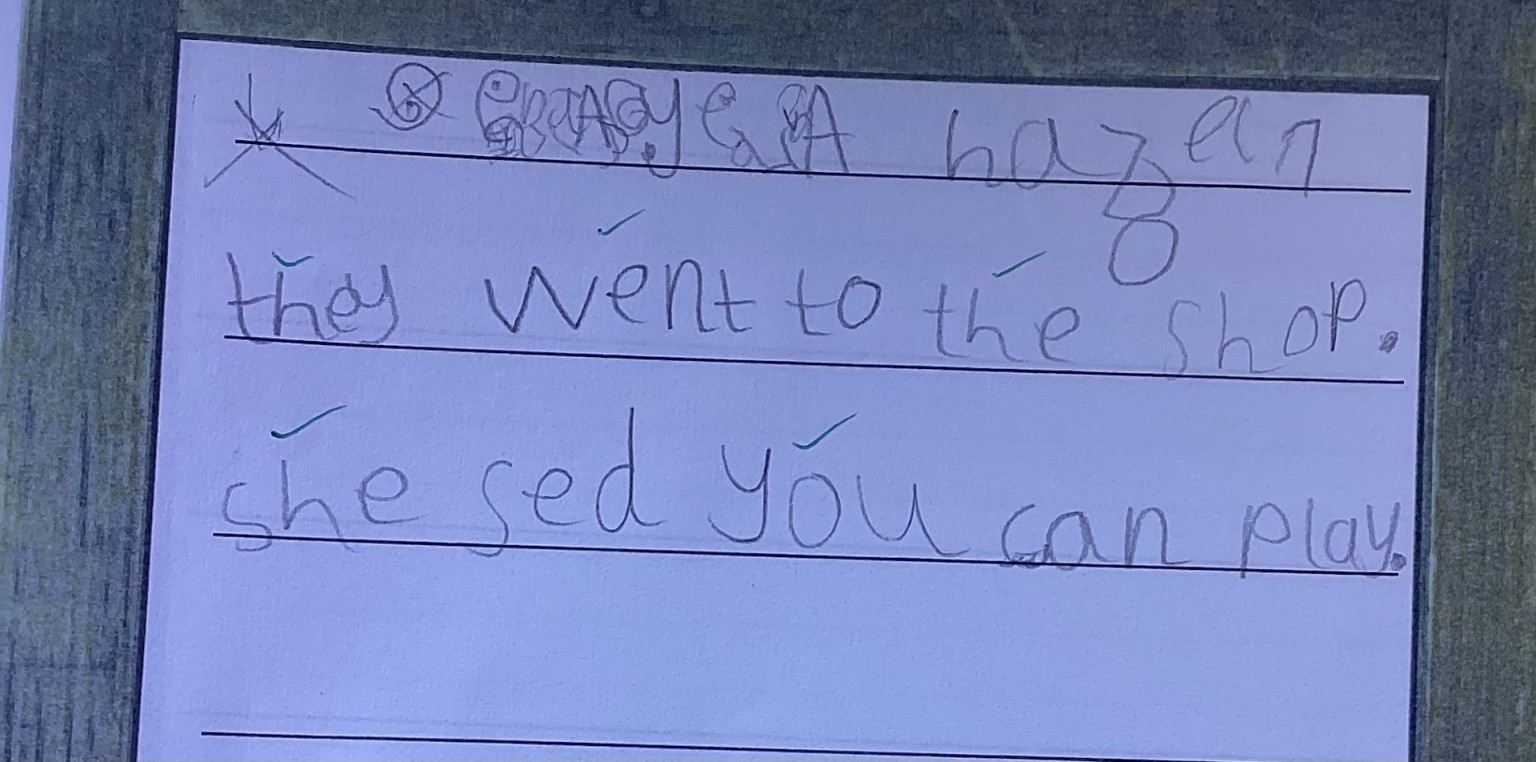 hazen
they went to the shop.
she sed you can play.